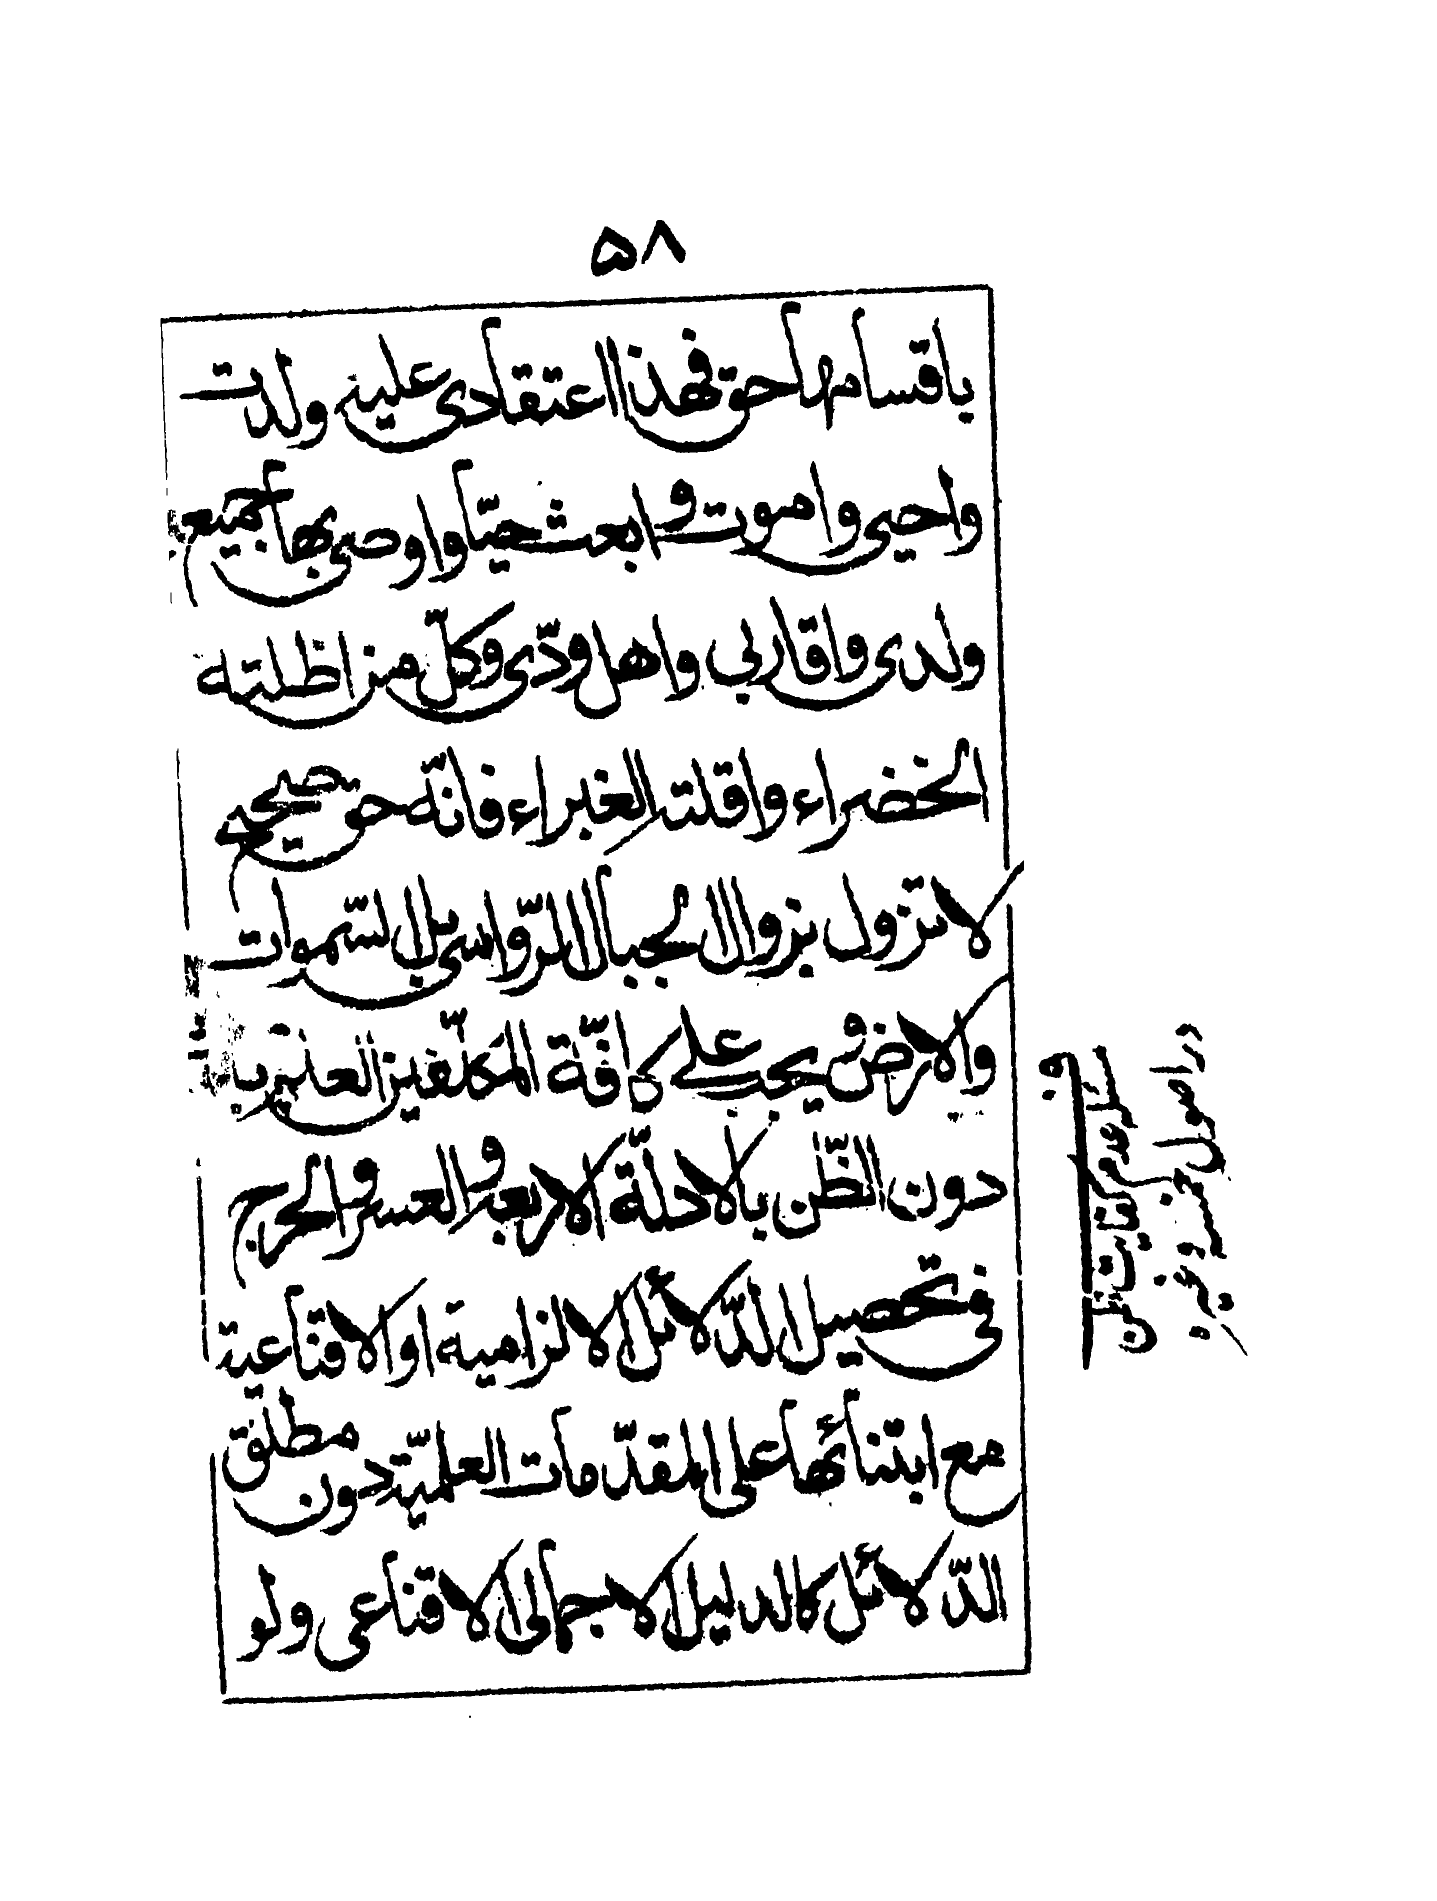 ۵۸
باقسامها حق فهذا اعتقادی علیه ولدت
واحیی واموت و ابعث حیّا واوصی بها جمیع
ولدی واقاربی واهل ودّی وکلّ من اظلته
الخضراء واقلته الغبراء فانّه حق صحیح
لا تزول بزوال الجبال الرّواسی بل السّموات
والارض و یجب علی کافّة المکلّفین العلم بها
دون الظّن بالادلّة الاربعه و العسر والحرج
فی تحصیل الدّلائل الالزامیة او الاقناعیة
مع ابتنائها علی المقدّمات العلمیّة دون مطلق
الدّلائل کالدلیل الاجمالی الاقناعی ولو
عدم کفایت ظن
در اصول خمسه و غیره